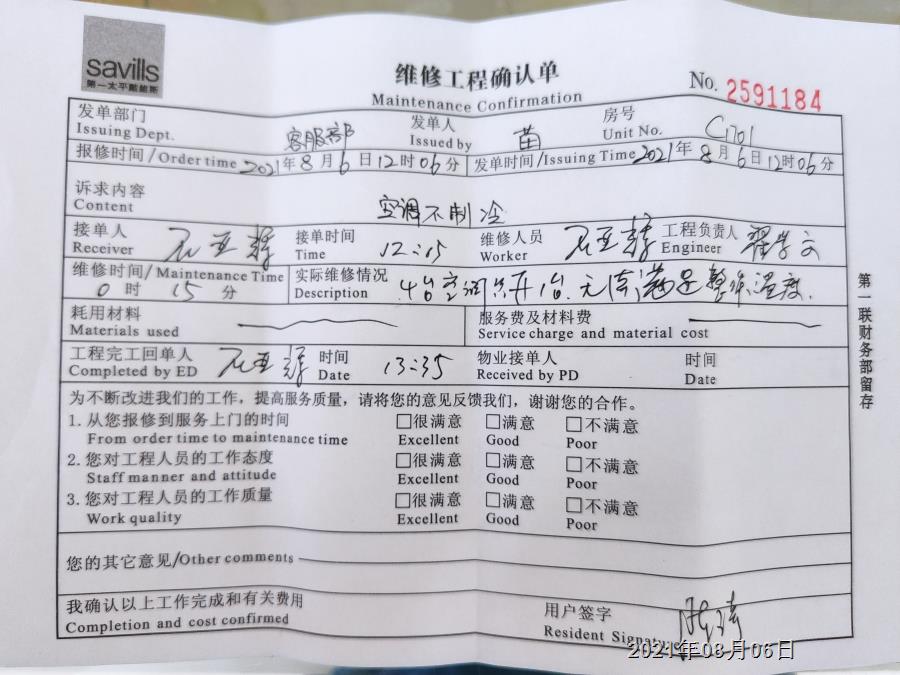 savills
第一太平戴维斯
维修工程确认单
Maintenance Confirmation
No. 2591184
发单部门 客服部 发单人 苗 房号 C1701
Issuing Dept. Issued by Unit No.
报修时间/Order time 2021年8月6日12时06分 发单时间/Issuing Time 2021年8月6日12时06分
诉求内容 空调不制冷
Content
接单人 石亚辉 接单时间 12:15 维修人员 石亚辉 工程负责人
Receiver Time Worker Engineer
维修时间/Maintenance Time 实际维修情况 4台空调只开1台.无法满足整体温度.
0时15分 Description
耗用材料 服务费及材料费
Materials used Service charge and material cost
工程完工回单人 石亚辉 时间 13:35 物业接单人 时间
Completed by ED Date Received by PD Date
为不断改进我们的工作，提高服务质量，请将您的意见反馈我们，谢谢您的合作。
1. 从您报修到服务上门的时间 □很满意 □满意 □不满意
From order time to maintenance time Excellent Good Poor
2. 您对工程人员的工作态度 □很满意 □满意 □不满意
Staff manner and attitude Excellent Good Poor
3. 您对工程人员的工作质量 □很满意 □满意 □不满意
Work quality Excellent Good Poor
您的其它意见/Other comments
我确认以上工作完成和有关费用 用户签字
Completion and cost confirmed Resident Signature
第一联财务部留存
2021年08月06日